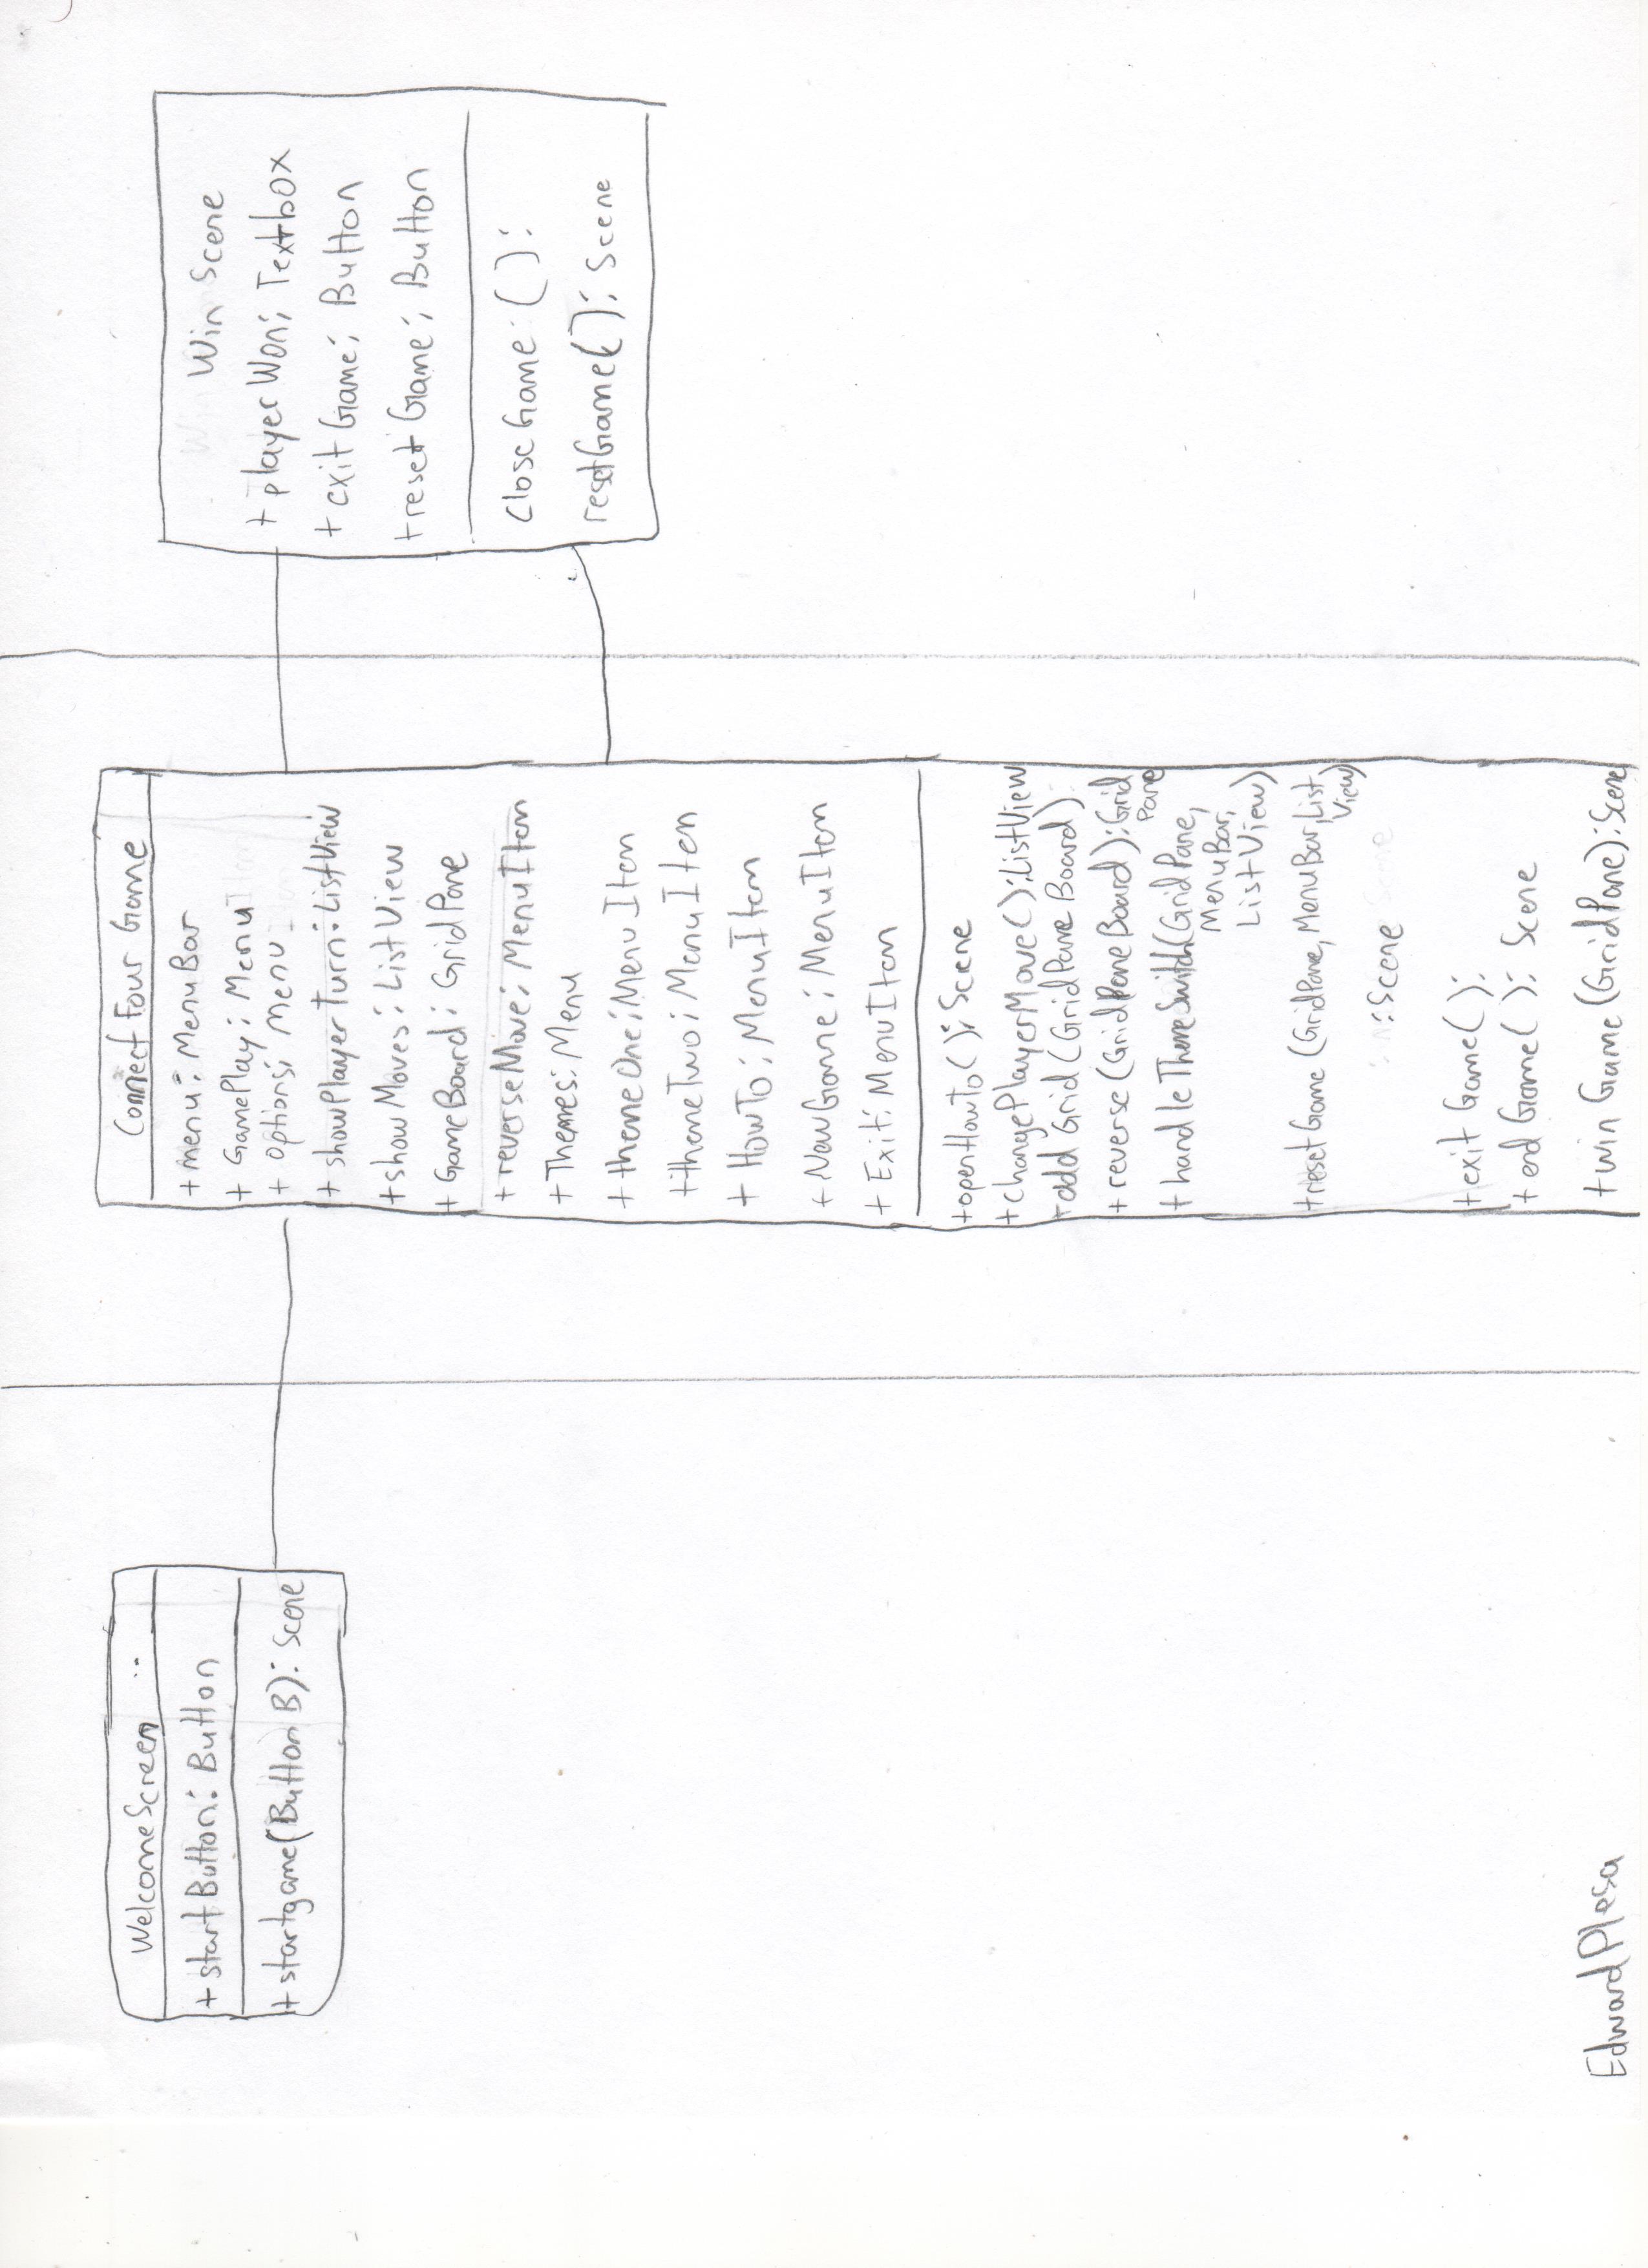 WelcomeScreen
+ startButton: Button
+ startgame(Button B): Scene
Connect Four Game
+ menu: MenuBar
+ GamePlay: Menu
+ options: Menu
+ showPlayerTurn: ListView
+ showMoves: ListView
+ GameBoard: GridPane
+ reverseMove: MenuItem
+ Themes: Menu
+ themeOne: MenuItem
+ themeTwo: MenuItem
+ HowTo: MenuItem
+ NewGame: MenuItem
+ Exit: MenuItem
+ openHowTo(): Scene
+ changePlayerMove(): ListView
+ add Grid (GridPane Board):
+ reverse (GridPane Board): Grid
Pane
+ handleThemeSwitch(GridPane,
MenuBar,
ListView)
+ resetGame (GridPane, MenuBar, List
View)
: Scene
+ exit Game():
+ end Game(): Scene
+ win Game (GridPane): Scene
Win Scene
+ playerWon: Textbox
+ exitGame: Button
+ resetGame: Button
CloseGame: ():
resetGame(): Scene
Edward Plesa